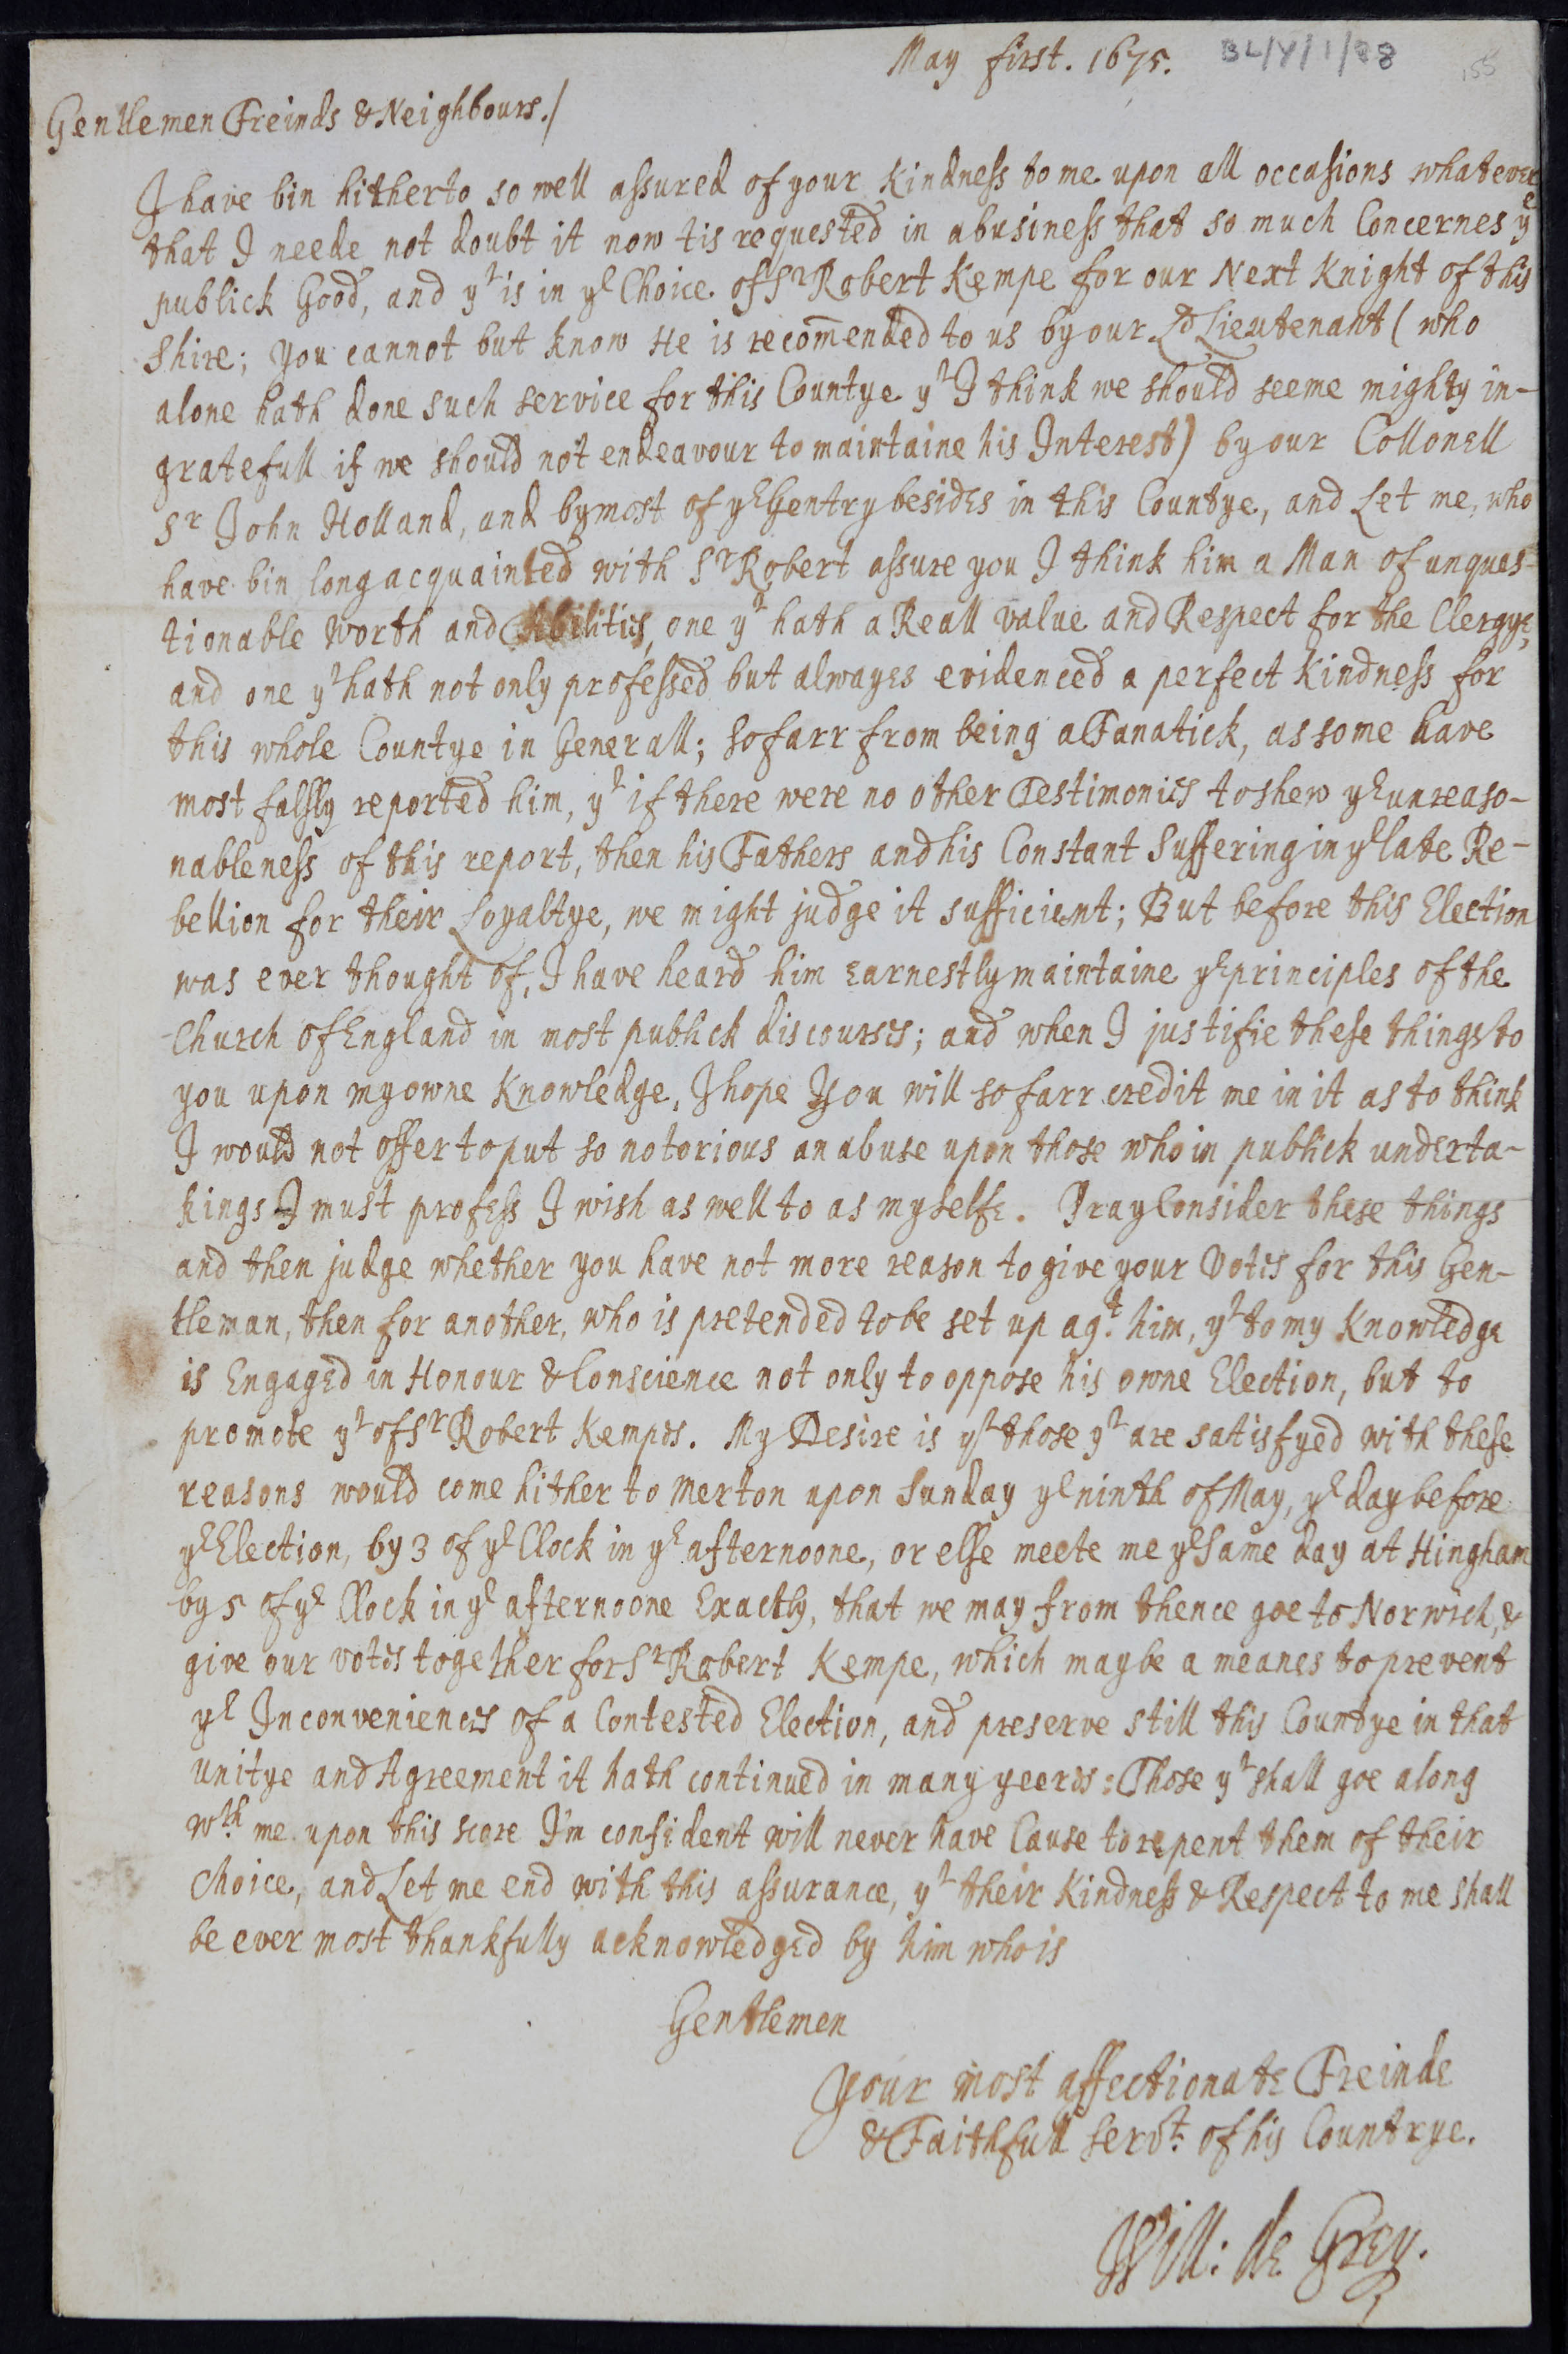 May first. 1675. BL/Y/1/88 155
Gentlemen Freinds & Neighbours./
I have bin hitherto so well assured of your Kindness to me upon all occasions whatever
that I neede not doubt it now tis requested in a business that so much Concernes yᵉ
publick Good, and yᵗ is in yᵉ Choice of Sʳ Robert Kempe for our Next Knight of this
Shire; you cannot but know He is recom̄ended to us by our Lᵈ Lieutenant (who
alone hath done such service for this Countye yᵗ I think we should seeme mighty in-
gratefull if we should not endeavour to maintaine his Interest) by our Collonell
Sʳ John Holland, and by most of yᵉ Gentry besides in this Countye, and Let me, who
have bin long acquainted with Sʳ Robert assure you I think him a Man of unques-
tionable worth and Abilities, one yᵗ hath a Reall value and Respect for the Clergye,
and one yᵗ hath not only professed but alwayes evidenced a perfect Kindness for
this whole Countye in Generall; so farr from being a Fanatick, as some have
most falsly reported him, yᵗ if there were no other Testimonies to shew yᵉ unreaso-
nableness of this report, then his Fathers and his Constant Suffering in yᵉ late Re-
bellion for their Loyaltye, we might judge it sufficient; But before this Election
was ever thought of, I have heard him earnestly maintaine yᵉ principles of the
Church of England in most publick discourses; and when I justifie these things to
you upon my owne Knowledge, I hope You will so farr credit me in it as to think
I would not offer to put so notorious an abuse upon those who in publick underta-
kings I must profess I wish as well to as my selfe. Pray Consider these things
and then judge whether you have not more reason to give your Votes for this Gen-
tleman, then for another, who is pretended to be set up agᵗ. him, yᵗ to my Knowledge
is Engaged in Honour & Conscience not only to oppose his owne Election, but to
promote yᵗ of Sʳ Robert Kempes. My Desire is yᵗ those yᵗ are satisfyed with these
reasons would come hither to Merton upon Sunday yᵉ ninth of May, yᵉ day before
yᵉ Election, by 3 of yᵉ Clock in yᵉ afternoone, or else meete me yᵉ same day at Hingham
by 5 of yᵉ Clock in yᵉ afternoone Exactly, that we may from thence goe to Norwich, &
give our votes together for Sʳ Robert Kempe, which may be a meanes to prevent
yᵉ Inconveniences of a Contested Election, and preserve still this Countye in that
unitye and Agreement it hath continued in many yeeres: Those yᵗ shall goe along
wᵗʰ me upon this score I'm confident will never have Cause to repent them of their
Choice, and Let me end with this assurance, yᵗ their Kindness & Respect to me shall
be ever most thankfully acknowledged by him who is
Gentlemen
Your most affectionate Freinde
& Faithfull servᵗ. of his Countrye.
Will: de Grey.